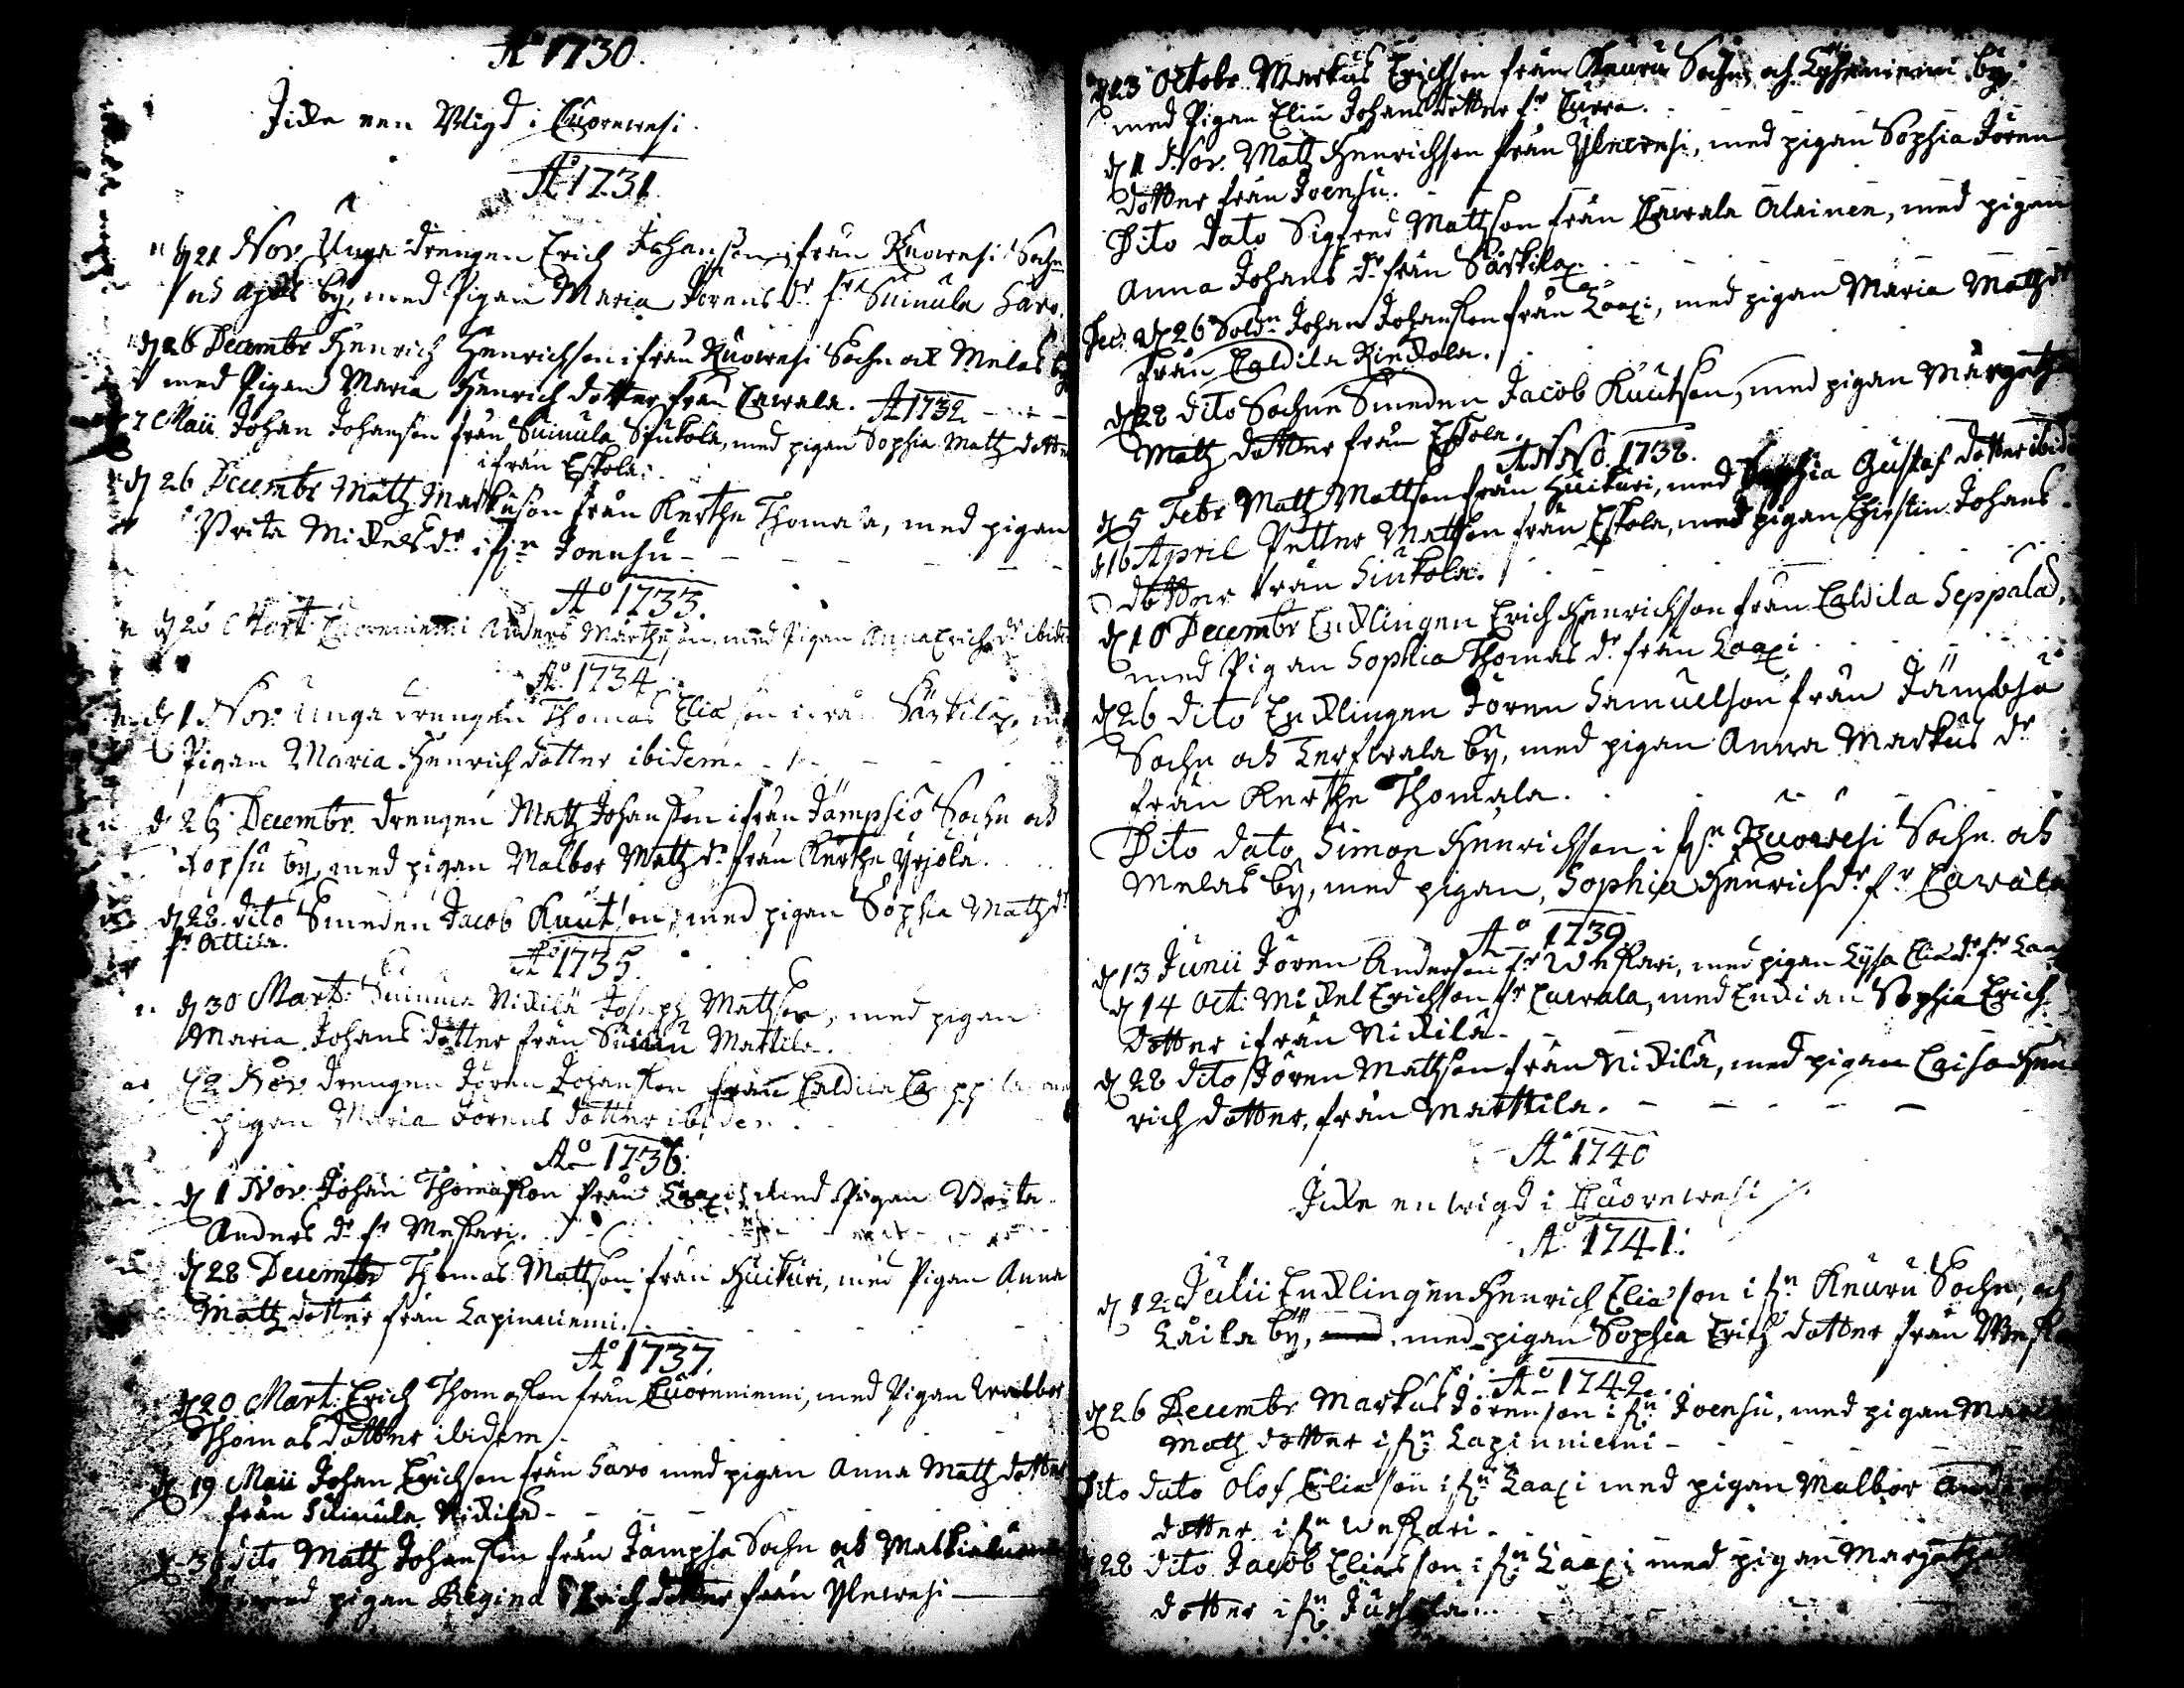 Aº 1730.
Icke een Wigd i Cuorewesi.
Aº 1731
d 21 Nov. Unga drengen Erich Johansson ifrån Ruowesi Sochn
och by, med Pigan Maria Jörens dr fr Suinula Savo.
d 26 Decembr Henrich Henrichsson ifrån Ruowesi Sochn och Melas by
med Pigan Maria Henrich dotter från Lawala. Aº 1732
7 Maii Johan Johansson från Suinula Siukola, med pigan Sophia Matz dotter
ifrån Eskola.
d 26 Decembr Matz Markusson från Kerthe Thomala, med pigan
Brita Mickels dr ifrn Joensu
Aº 1733.
d 26 Mart. Cuoreniemi Anders Marthesson, med Pigan Anna Erichs dr ibidem
Aº 1734
d 1 Nov. Unga drengen Thomas Eliasson ifrån Särkilax, med
Pigan Maria Henrich dotter ibidem.
d 26 Decembr. drengen Matz Johansson ifrån Jämpsiö Sochn och
by, med pigan Walbor Matz dr från Kerthe Yrjölä.
d 28 dito Smeden Jacob Knutson, med pigan Sophia Matz dr
fr Attila.
Aº 1735.
d 30 Mart. Suinula Nickilä Joseph Mattsson, med pigan
Maria Johans dotter från Suinu Mattila.
d 2 Nov. drengen Jören Johansson från Caldila
pigan Maria Jörens dotter ibidem.
Aº 1736.
d 1 Nov. Johan Thomasson från Laaxi, med Pigan Brita
Anders dr fr Weskari.
d 28 Decembr Thomas Mattsson från Huikuri, med Pigan Anna
Matz dotter från Lapinniemi.
Aº 1737.
d 20 Mart. Erich Thomasson från Cuoreniemi, med Pigan Walbor
Thomas dotter ibidem.
d 19 Maii Johan Erichsson från Savo med pigan Anna Matz dotter
från Suinula Nickilä
d 30 dito Matz Johansson från Jämpsä Sochn och
med pigan Regina Erich dotter från Ylewesi
d 23 Octobr. Markus Erichsson från Keuru Sochn och by
med Pigan Elin Johans dotter fr Curra.
d 1 Nov. Matz Henrichsson från Ylewesi, med pigan Sophia Jören
dotter från Joensu.
Dito dato Sigfred Mattsson från Lawala Alainen, med pigan
Anna Johans dr från Särkilax.
Dec. d 26 Soldn Johan Johansson från Laaxi, med pigan Maria Matz dr
från Caldila Rickola.
d 28 dito Sochne Smeden Jacob Knutson, med pigan Margetha
Matz dotter från Eskola.
ANNO. 1738.
d 5 Febr Matz Mattsson från Huikuri, med Sophia Gustaf dotter ibid
d 16 April Petter Mattsson från Eskola, med pigan Chirstin Johans
dotter från Siukola.
d 10 Decembr Encklingen Erich Henrichsson från Caldila Seppälä,
med Pigan Sophia Thomas dr från Laaxi
d 26 dito Encklingen Jören Samuelsson från Jämbsä
Sochn och by, med pigan Anna Markus dr
från Kerthe Thomala.
Dito dato Simon Henrichsson i frn Ruowesi Sochn och
Melas by, med pigan, Sophia Henrichs dr fr Lawala
Aº 1739
d 13 Junii Jören Andersson fr Weskari, med pigan Lysa Elias dr fr Laa
d 14 Oct. Mickel Erichsson fr Lawala, med Enckian Sophia Erich
dotter ifrån Nickilä
d 28 dito Jören Mattsson från Nickilä, med pigan Caisa Hen
rich dotter, från Marttila.
Aº 1740
Icke en wigd i Cuorewesi
Aº 1741.
d 12 Julii Encklingen Henrich Eliasson i frn Keuru Sochn, och
Låila by, med pigan Sophia Erich dotter från Weska
Aº 1742.
d 26 Decembr Markus Jörensson i frn Joensu, med pigan Maria
Matz dotter i frn Lapinniemi
Dito dato Olof Eliasson i frn Laaxi med pigan Walbor Anders
dotter i frn Weskari
d 28 dito Jacob Eliasson i frn Laaxi med pigan Margetha
dotter i frn Jussila